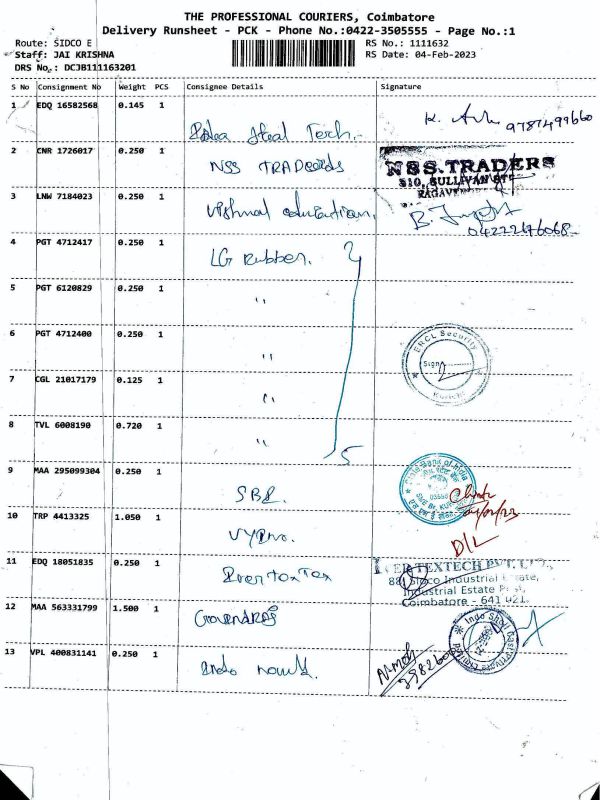 THE PROFESSIONAL COURIERS, Coimbatore
Delivery Runsheet - PCK - Phone No.:0422-3505555 - Page No.:1
Route: SIDCO E
Staff: JAI KRISHNA
DRS No.: DCJB111163201
RS No.: 1111632
RS Date: 04-Feb-2023
S No Consignment No Weight PCS Consignee Details Signature
1 EDQ 16582568 0.145 1 Steel Tech. 9787499660
2 CNR 1726017 0.250 1 NSS TRADERS NSS.TRADERS
SULLIVAN ST
3 LNW 7184023 0.250 1 Vishnal education
04222476068
4 PGT 4712417 0.250 1 LG Rubber.
5 PGT 6120829 0.250 1 "
6 PGT 4712400 0.250 1 "
ERCL Security
Sign
Kurichi
7 CGL 21017179 0.125 1 "
8 TVL 6008190 0.720 1 "
5
9 MAA 295099304 0.250 1 SBI.
State Bank of India
10 TRP 4413325 1.050 1
D/L
11 EDQ 18051835 0.250 1 TEXTECH PVT. LTD.
Sidco Industrial Estate,
Industrial Estate Post,
Coimbatore - 641 021.
12 MAA 563331799 1.500 1
Indo Shell Cast Private Limited
13 VPL 400831141 0.250 1 Indo